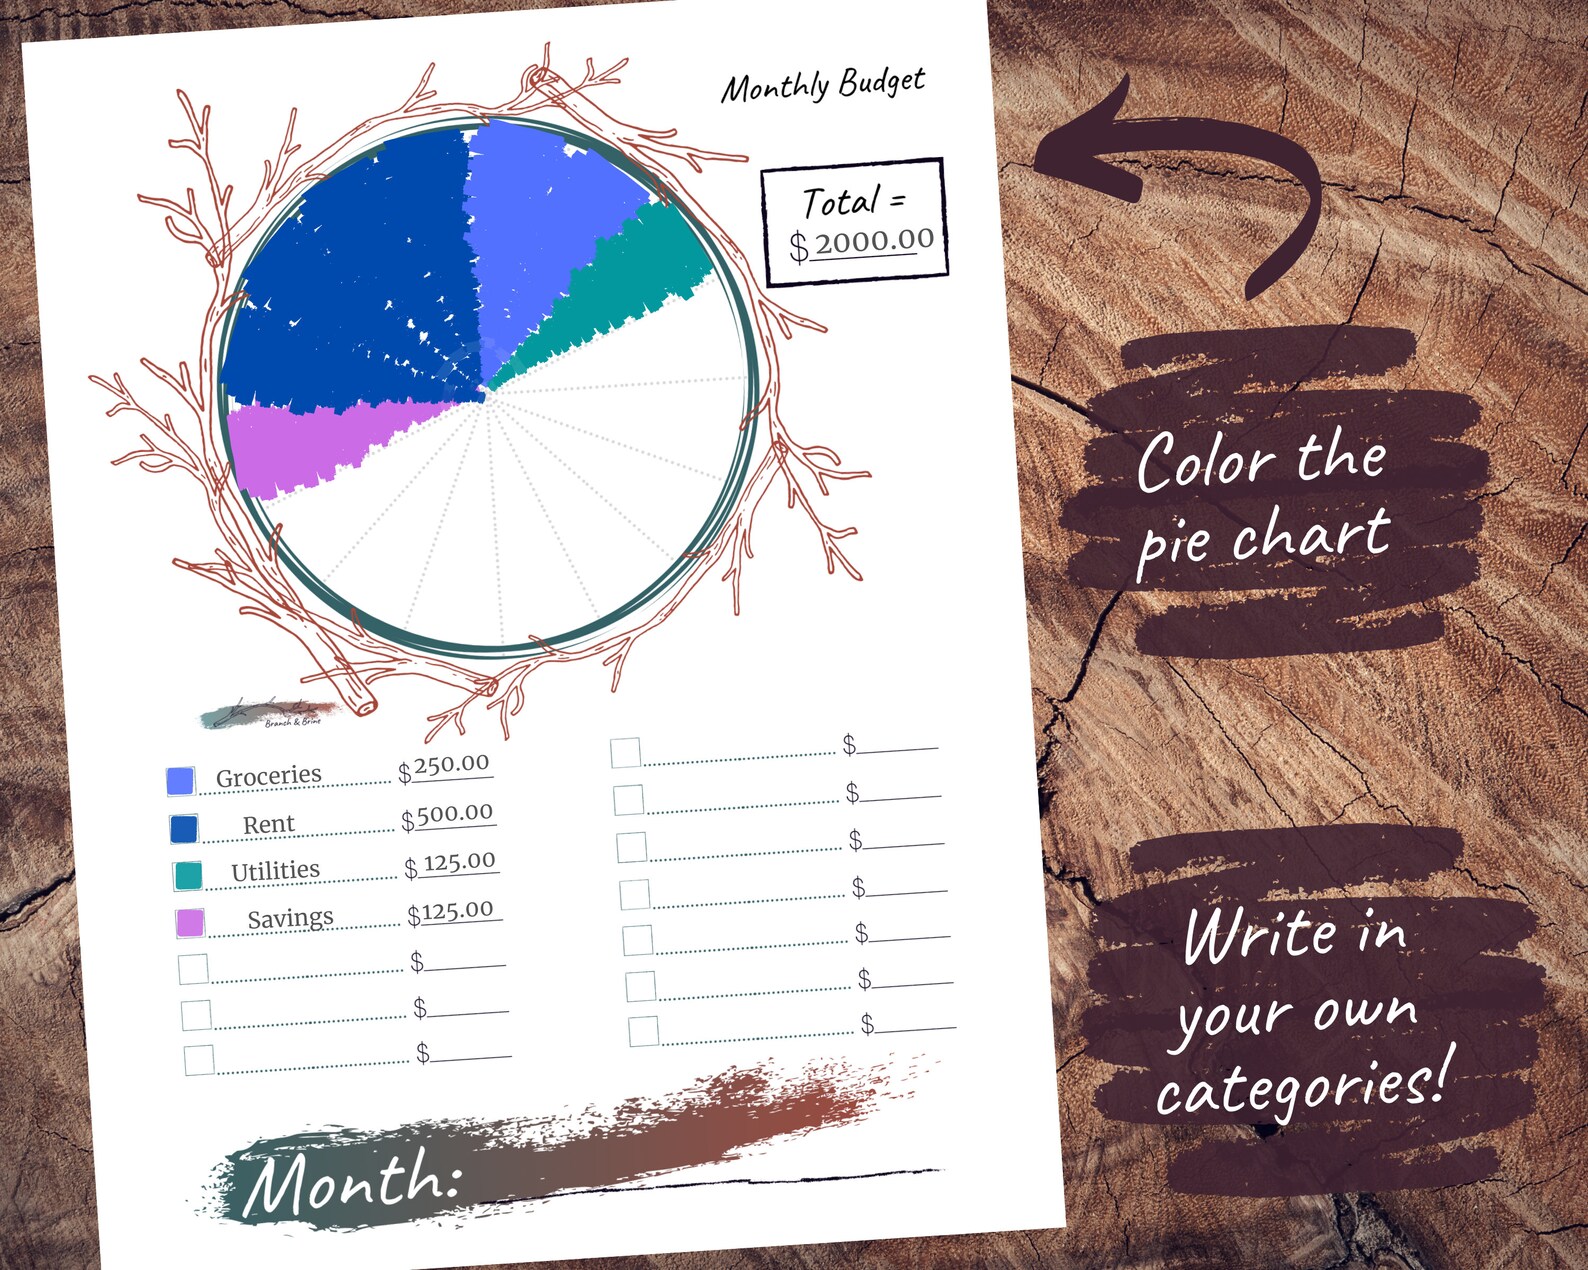 Monthly Budget
Total =
$ 2000.00
Branch & Brine
Groceries $ 250.00
Rent $ 500.00
Utilities $ 125.00
Savings $ 125.00
$
$
$
$
$
$
$
$
$
$
Month:
Color the
pie chart
Write in
your own
categories!